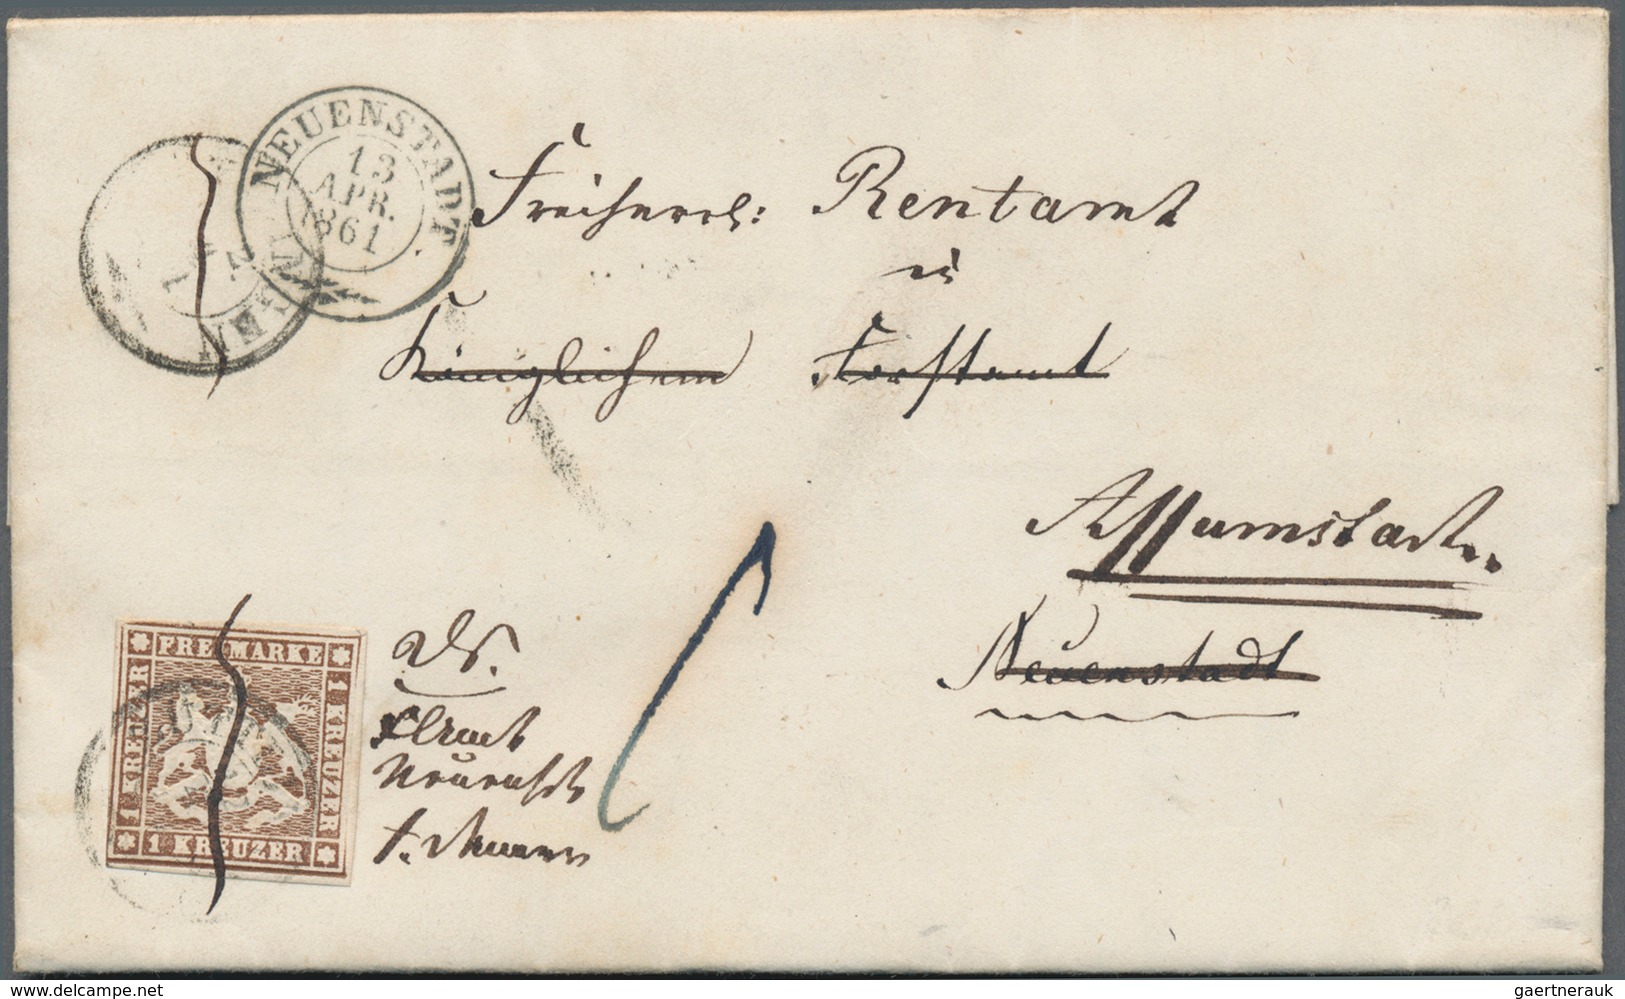 NEUENSTADT
13
APR.
1861
INGEN
Freiherrl: Rentamt
in
Königlichem Forstamt
Assumstadt.
Neuenstadt
FREIMARKE
1 KREUZER
1 KREUZER
1 KREUZER
DS.
Neuenst
www.delcampe.net
gaertnerauk